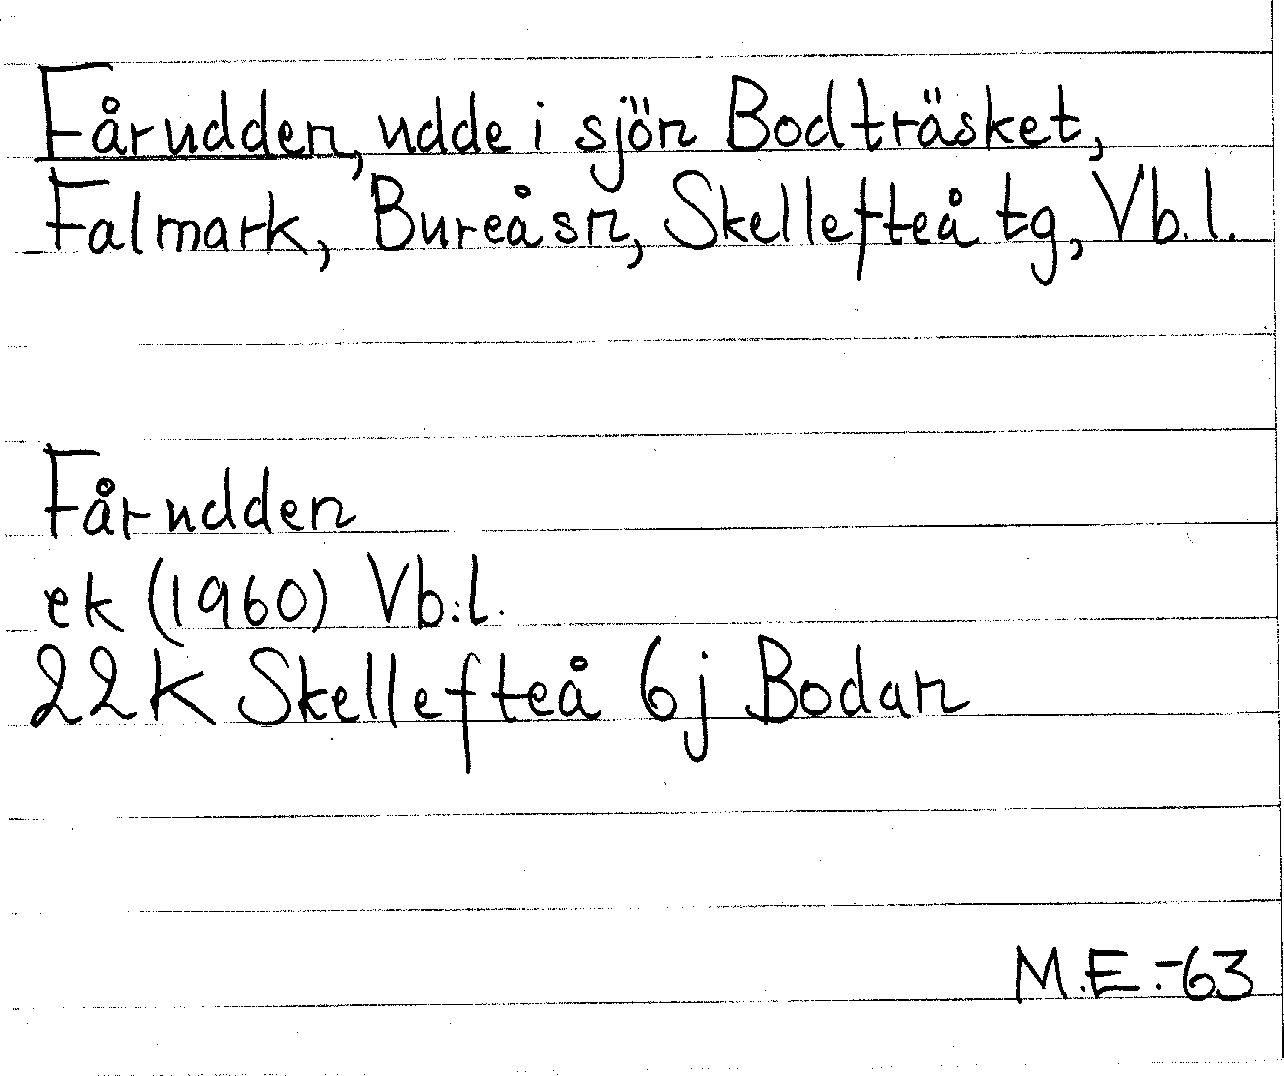 Fårudden, udde i sjön Bodträsket,
Falmark, Bureå sn, Skellefteå tg, Vb.l.
Fårudden
ek (1960) Vb.l.
22K Skellefteå 6j Bodan
M.E.-63